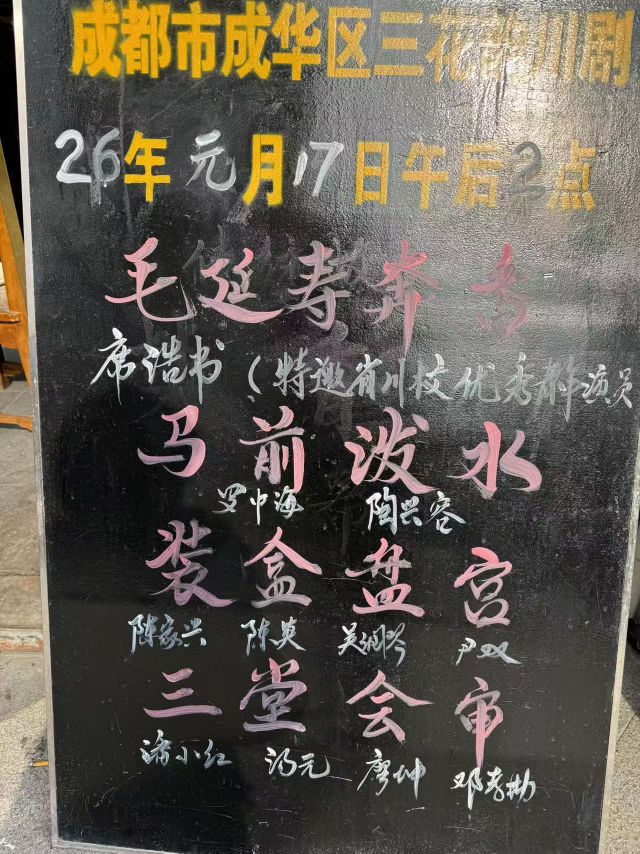 成都市成华区三花韵川剧
26年元月17日午后2点
毛延寿奔番
席浩书（特邀省川校优秀青年演员
马前泼水
罗中海 陶兴容
装盒盘宫
陈家兴 陈英 尹双
三堂会审
潘小红 汤元 廖坤 邓孝勘